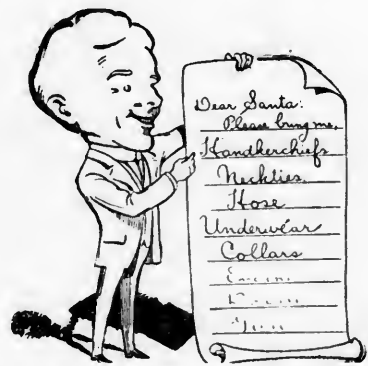 Dear Santa:
Please bring me,
Handkerchiefs
Neckties
Hose
Underwear
Collars